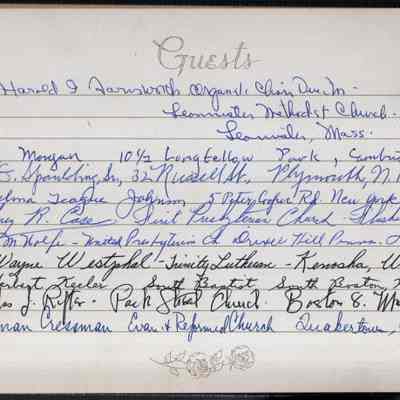 Guests
Harold I Farnsworth Organist Choir Dir. M.
Leominster Methodist Church.
Leominster, Mass.
Morgan 10½ Longfellow Park, Cambri
Spaulding, Sr, 32 Russell St. Plymouth, N.
Teague Johnson, 5 Peter Cooper Rd. New York
R. Case First Presbyterian Church
Wolfe - United Presbyterian Ch Drexel Hill Penna.
Wayne Westphal - Trinity Lutheran - Kenosha, W
Keeler South Baptist South Boston,
J. Park Street Church. Boston 8. Ma
man Cressman Evan. & Reformed Church Quakertown,